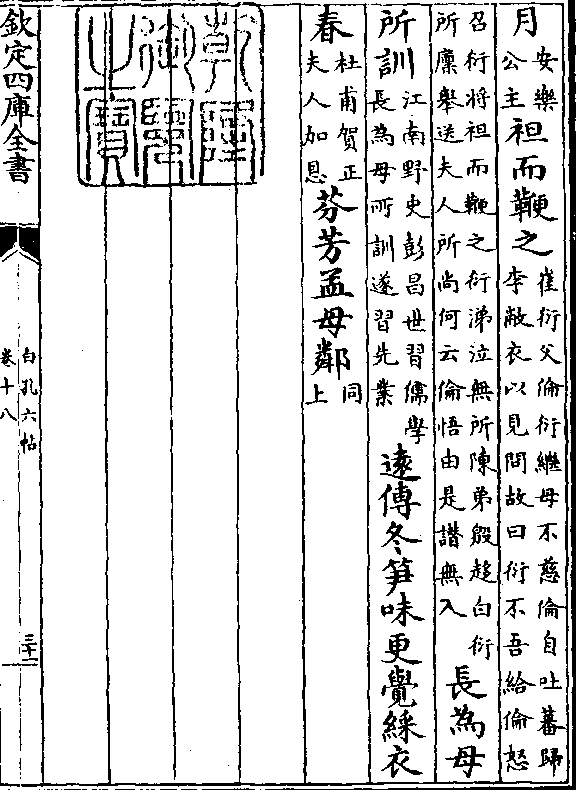 月安樂公主袒而鞭之崔衍父倫衍繼母不慈倫自吐蕃歸李敝衣以見問故曰衍不吾給倫怒
召衍將袒而鞭之衍涕泣無所陳弟殷趍白衍所廩舉送夫人所尚何云倫悟由是譖無入長為母
所訓江南野史彭昌世習儒學長為母所訓遂習先業遠傳冬笋味更覺綵衣
春杜甫賀正夫人加恩芬芳孟母鄰同上
乾隆
御覽
之寶
欽定四庫全書
白孔六帖
卷十八
三十二